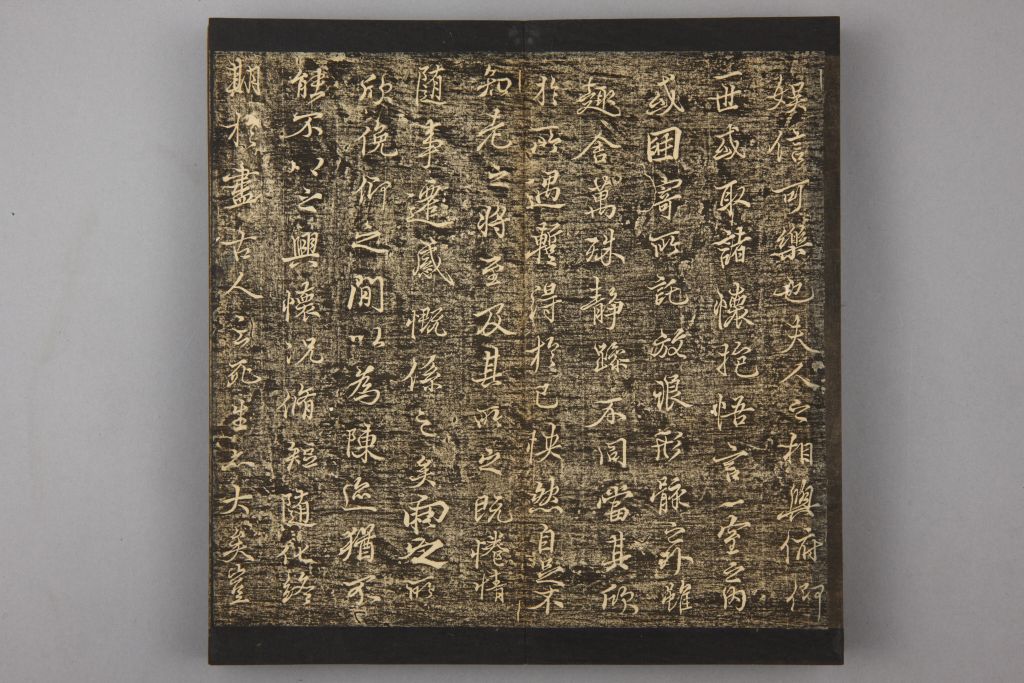 娛信可樂也夫人之相與俯仰
一世或取諸懷抱悟言一室之內
或因寄所託放浪形骸之外雖
趣舍萬殊静躁不同當其欣
於所遇蹔得於己怏然自足不
知老之將至及其所之既惓情
随事遷感慨係之矣向之所
欣俛仰之間以為陳迹猶不
能不以之興懷况脩短随化終
期於盡古人云死生亦大矣豈